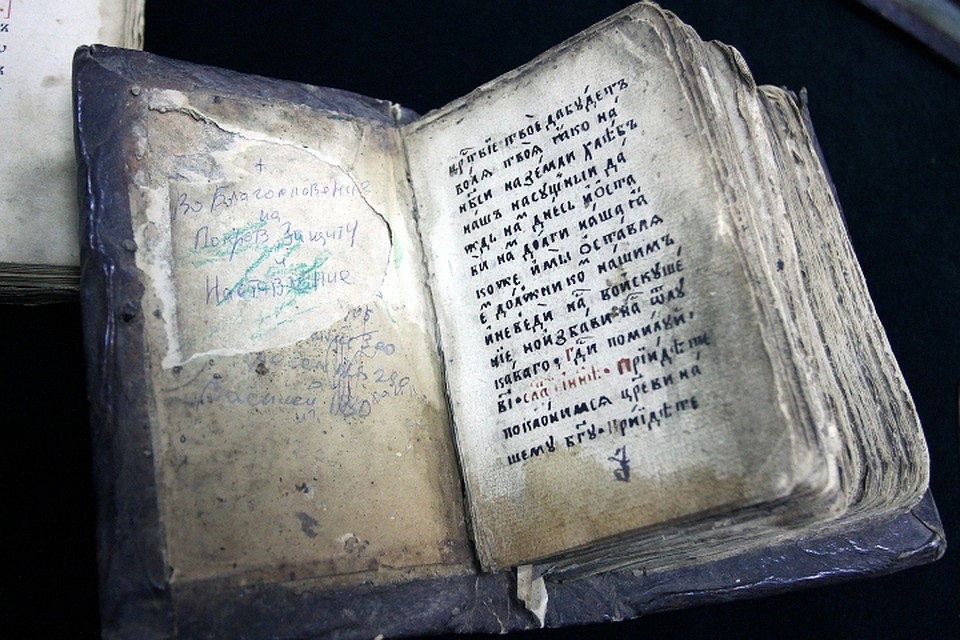 +
Во Благословение
на
Покров Защиту
и
Наставление
црⷭ҇твїе твоѐ дабу́детъ
во́лѧ твоѧ̀ ꙗ҆́ко на́
нб҃си и҆ назе́мли хлѣ́бъ
на́шъ насу́щныи да́
ждь на́ⷨ дне́сь и҆̀ѻста
ви на́ⷨ до́лги на́ша ꙗ҆̀
коже, и҆́мы̀ ѻ҆ставлѧ
е́ⷨ до́лжникоⷨ на́шимъ
иневеди̇̀ на́ⷭ воискуше́
нїе ноизба́ви на́ⷭ ѿлу́
ка́ваго, гдⷭ҇и поми́луй,
в҃і. сла́ і҆ни́нѣ. Прїидѣ́те
покло́нимсѧ цр҃еви на́
шему̀ бг҃у. Прїидѣ́те